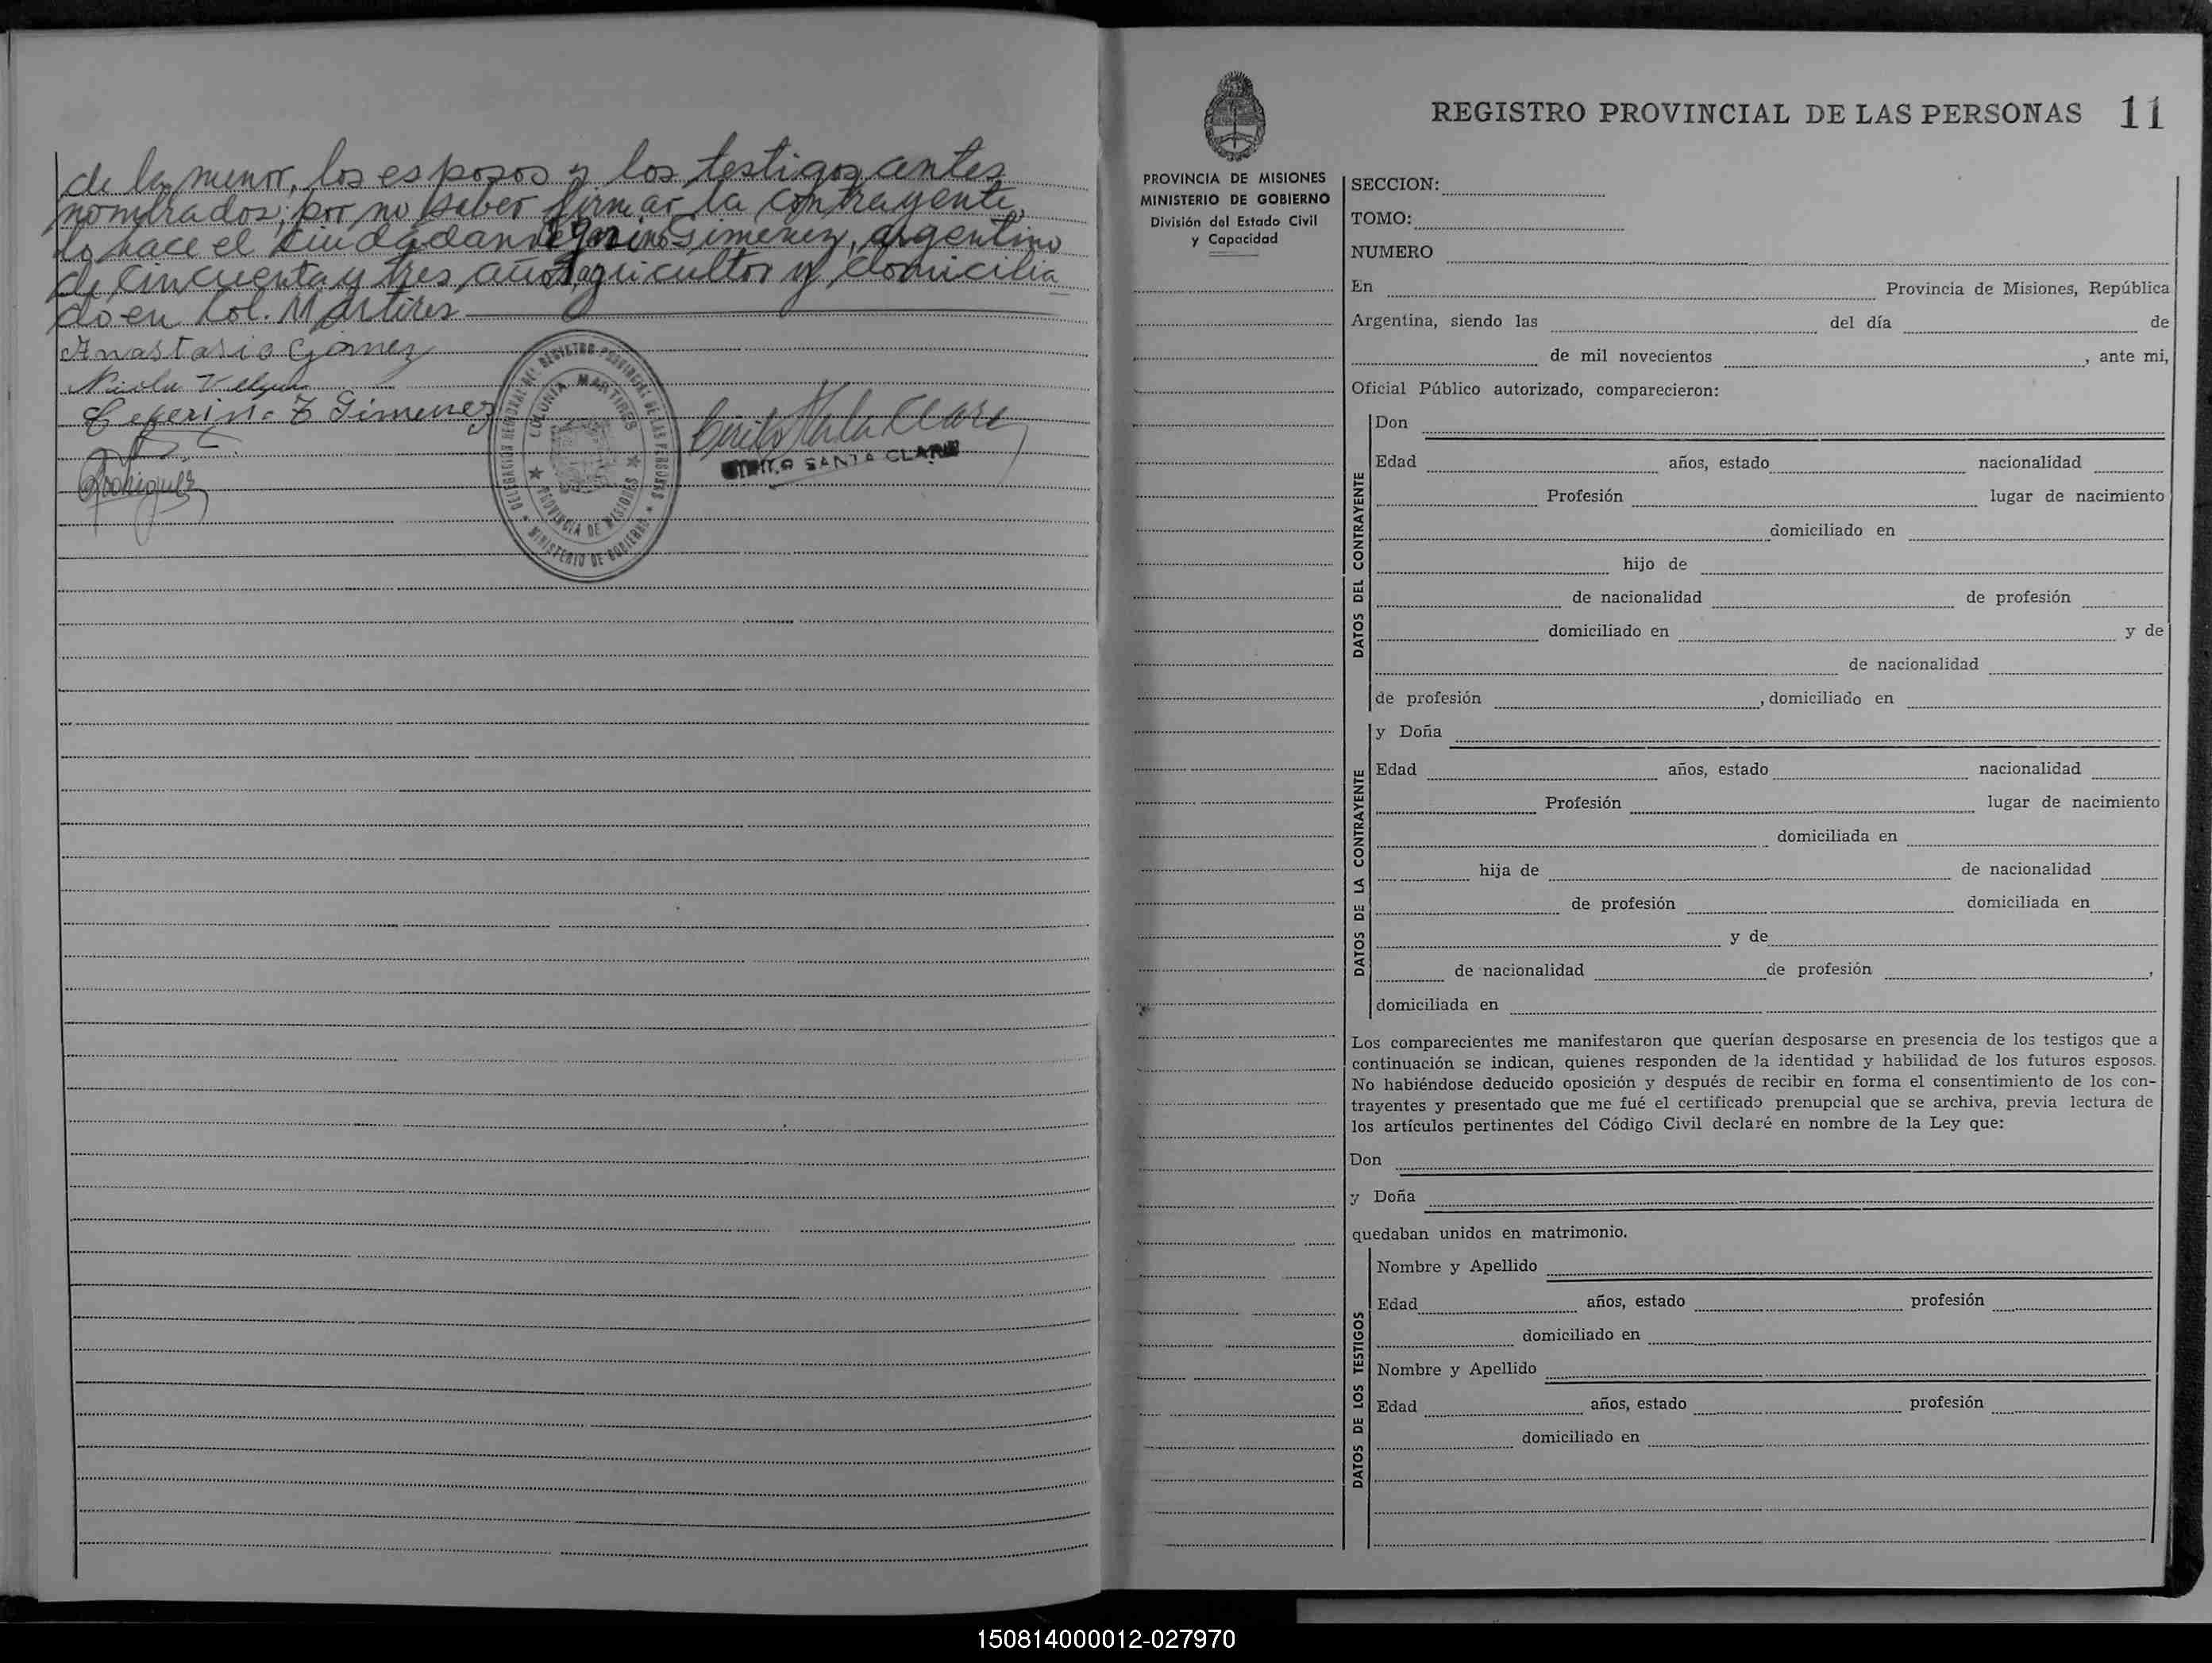 de la menor, los esposos y los testigos antes
nombrados; por no saber firmar la contrayente,
lo hace el ciudadano Ceferino Gimenez, argentino
de cincuenta y tres años, agricultor y domicilia
do en Col. Mártires
Anastasio Gómez
Ceferino Z Gimenez
Rodriguez
DELEGACION REGIONAL DEL REGISTRO PROVINCIAL DE LAS PERSONAS
COLONIA MARTIRES
PROVINCIA DE MISIONES
MINISTERIO DE GOBIERNO
Cirilo Santa Clara
CIRILO SANTA CLARA
REGISTRO PROVINCIAL DE LAS PERSONAS 11
PROVINCIA DE MISIONES
MINISTERIO DE GOBIERNO
División del Estado Civil
y Capacidad
SECCION:
TOMO:
NUMERO
En Provincia de Misiones, República
Argentina, siendo las del día de
de mil novecientos , ante mi,
Oficial Público autorizado, comparecieron:
DATOS DEL CONTRAYENTE
Don
Edad años, estado nacionalidad
Profesión lugar de nacimiento
domiciliado en
hijo de
de nacionalidad de profesión
domiciliado en y de
de nacionalidad
de profesión , domiciliado en
DATOS DE LA CONTRAYENTE
y Doña
Edad años, estado nacionalidad
Profesión lugar de nacimiento
domiciliada en
hija de de nacionalidad
de profesión domiciliada en
y de
de nacionalidad de profesión ,
domiciliada en
Los comparecientes me manifestaron que querían desposarse en presencia de los testigos que a
continuación se indican, quienes responden de la identidad y habilidad de los futuros esposos.
No habiéndose deducido oposición y después de recibir en forma el consentimiento de los con-
trayentes y presentado que me fué el certificado prenupcial que se archiva, previa lectura de
los artículos pertinentes del Código Civil declaré en nombre de la Ley que:
Don
y Doña
quedaban unidos en matrimonio.
DATOS DE LOS TESTIGOS
Nombre y Apellido
Edad años, estado profesión
domiciliado en
Nombre y Apellido
Edad años, estado profesión
domiciliado en
150814000012-027970